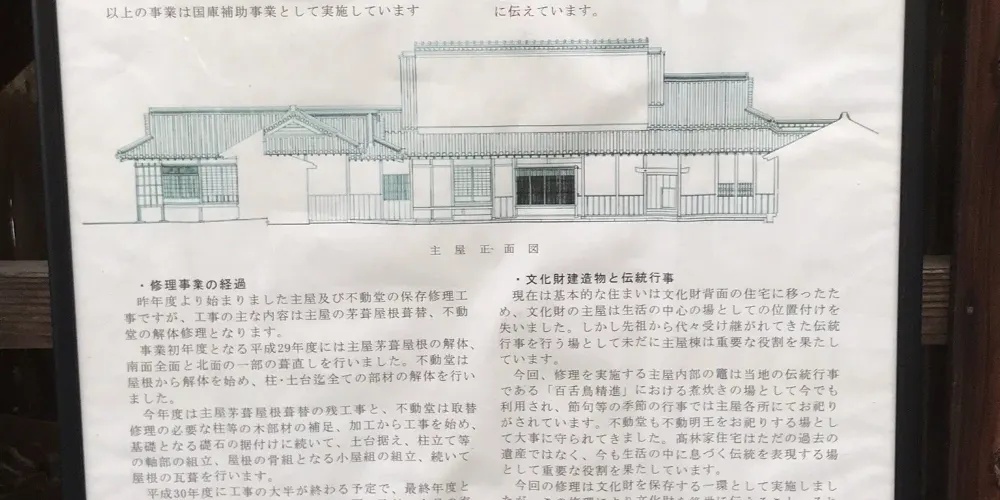 以上の事業は国庫補助事業として実施しています
に伝えています。
主屋正面図
・修理事業の経過
昨年度より始まりました主屋及び不動堂の保存修理工
事ですが、工事の主な内容は主屋の茅葺屋根葺替、不動
堂の解体修理となります。
事業初年度となる平成29年度には主屋茅葺屋根の解体、
南面全面と北面の一部の葺直しを行いました。不動堂は
屋根から解体を始め、柱・土台迄全ての部材の解体を行い
ました。
今年度は主屋茅葺屋根葺替の残工事と、不動堂は取替
修理の必要な柱等の木部材の補足、加工から工事を始め、
基礎となる礎石の据付けに続いて、土台据え、柱立て等
の軸部の組立、屋根の骨組となる小屋組の組立、続いて
屋根の瓦葺を行います。
平成30年度に工事の大半が終わる予定で、最終年度と
・文化財建造物と伝統行事
現在は基本的な住まいは文化財背面の住宅に移ったた
め、文化財の主屋は生活の中心の場としての位置付けを
失いました。しかし先祖から代々受け継がれてきた伝統
行事を行う場として未だに主屋棟は重要な役割を果たし
ています。
今回、修理を実施する主屋内部の竈は当地の伝統行事
である「百舌鳥精進」における煮炊きの場として今でも
利用され、節句等の季節の行事では主屋各所にてお祀り
がされています。不動堂も不動明王をお祀りする場とし
て大事に守られてきました。高林家住宅はただの過去の
遺産ではなく、今も生活の中に息づく伝統を表現する場
として重要な役割を果たしています。
今回の修理は文化財を保存する一環として実施しまし